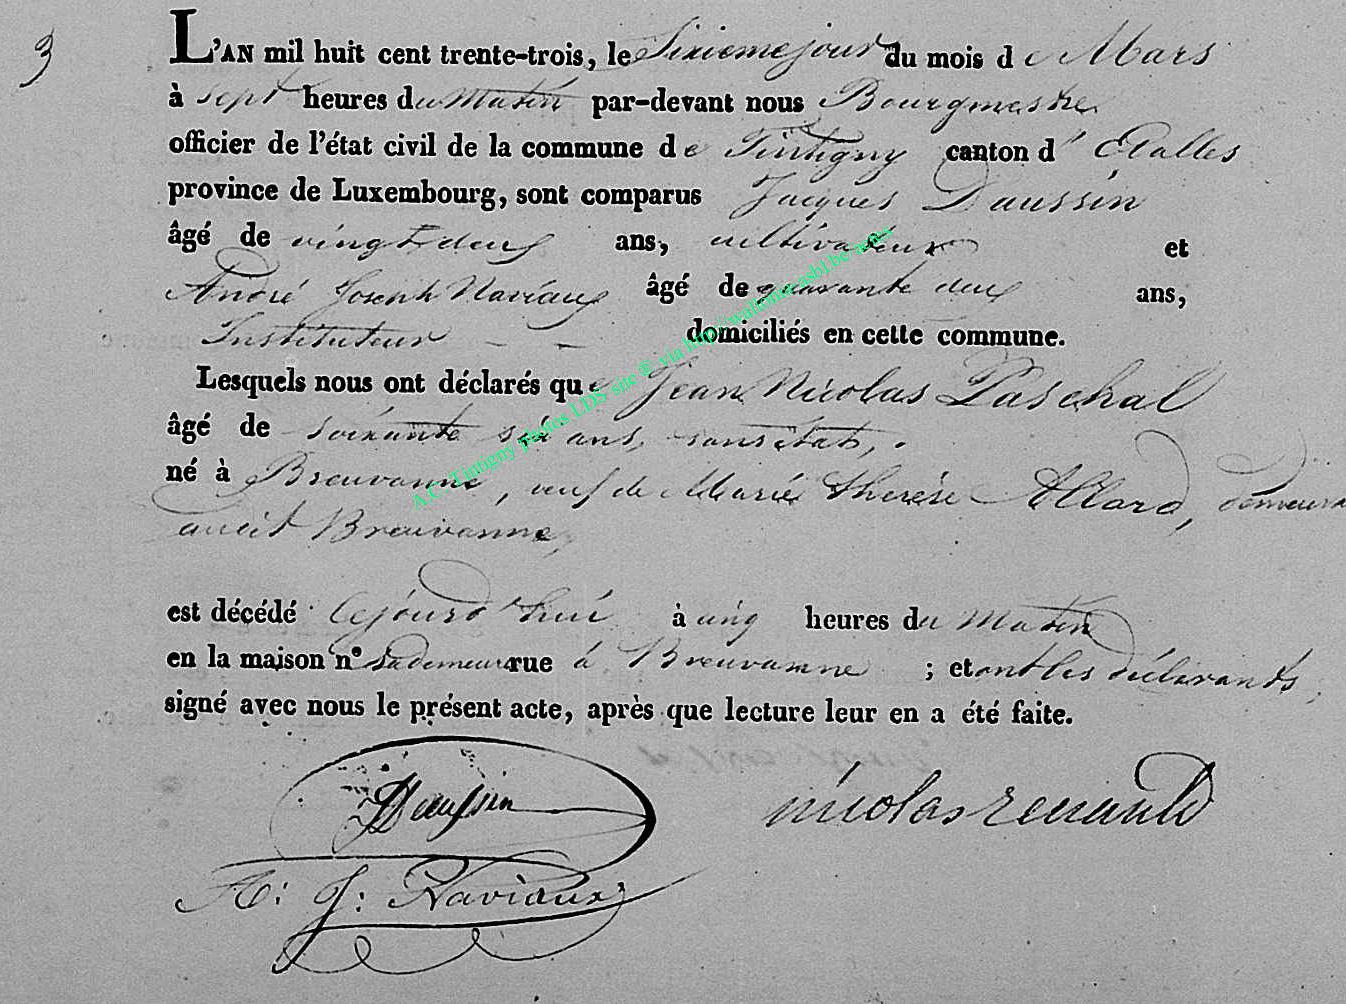 3
L'AN mil huit cent trente-trois, le Sixieme jour du mois de Mars
à sept heures du Matin par-devant nous Bourgmestre
officier de l'état civil de la commune de Tintigny canton d' Etalles
province de Luxembourg, sont comparus Jacques Daussin
âgé de vingt deux ans, cultivateur et
André Joseph Naviaux âgé de quarante deux ans,
Instituteur - - domiciliés en cette commune.
Lesquels nous ont déclarés que Jean Nicolas Paschal
âgé de soixante six ans, sans état,
né à Breuvanne, veuf de Marie Therèse Allard, demeura
audit Breuvanne,
est décédé cejourd'hui à cinq heures du Matin
en la maison n° sa demeure rue à Breuvanne ; et ont les déclarants
signé avec nous le présent acte, après que lecture leur en a été faite.
JDaussin
nicolas renauld
A: J: Naviaux
A.C. Tintigny photos LDS site ® via http://wallonia-asbl.be/